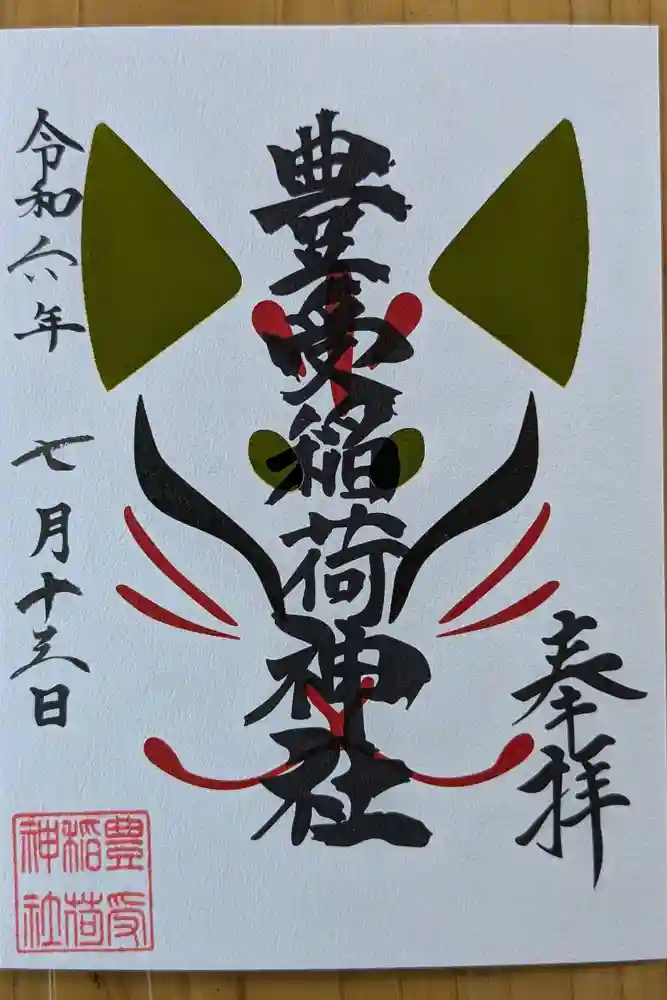 奉拝
豊受稲荷神社
令和六年 七月十三日
豊受
稲荷
神社